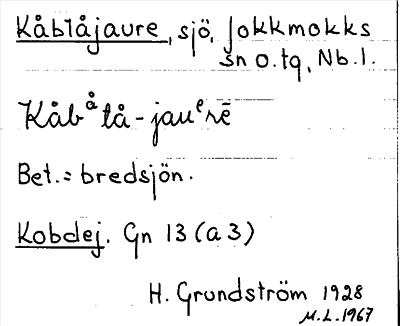 Kåblåjaure, sjö, Jokkmokks
sn o. tg, Nb. l.
Kåbålå-jauᵉrē
Bet. = bredsjön.
Kobdej. Gn 13 (a 3)
H. Grundström 1928
M.L. 1967